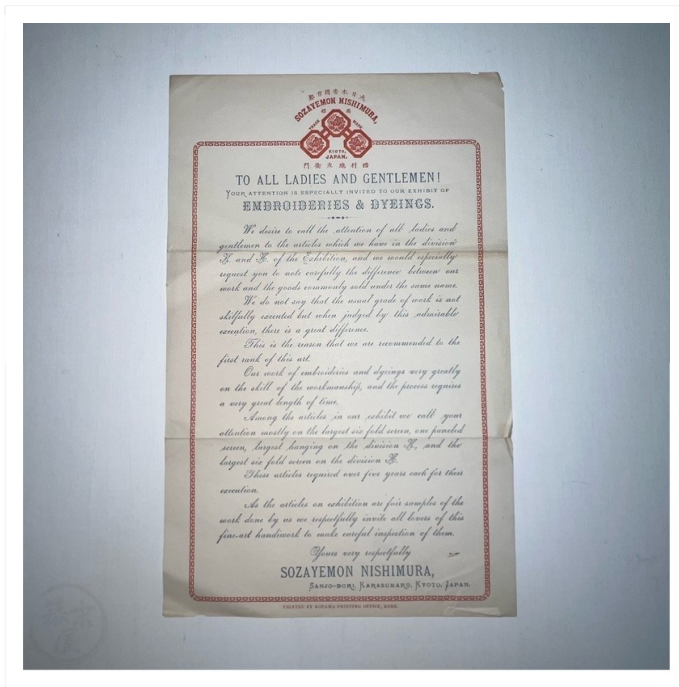 SOZAYEMON NISHIMURA,
TRADE MARK
KIYOTO,
JAPAN.
TO ALL LADIES AND GENTLEMEN!
YOUR ATTENTION IS ESPECIALLY INVITED TO OUR EXHIBIT OF
EMBROIDERIES & DYEINGS.
We desire to call the attention of all ladies and
gentlemen to the articles which we have in the division
and of the Exhibition, and we would especially
request you to note carefully the difference between our
work and the goods commonly sold under the same name.
We do not say that the usual grade of work is not
skilfully executed but when judged by this admirable
execution, there is a great difference.
This is the reason that we are recommended to the
first rank of this art.
Our work of embroideries and dyeings very greatly
on the skill of the workmanship, and the process requires
a very great length of time.
Among the articles in our exhibit we call your
attention mostly on the largest six fold screen, one paneled
screen, largest hanging on the division , and the
largest six fold screen on the division .
These articles required over five years each for their
execution.
As the articles on exhibition are fair samples of the
work done by us we respectfully invite all lovers of this
fine-art handiwork to make careful inspection of them.
Yours very respectfully
SOZAYEMON NISHIMURA,
SANJO-DORI, KARASUMARO, KYOTO, JAPAN.
PRINTED BY PRINTING OFFICE, KOBE.